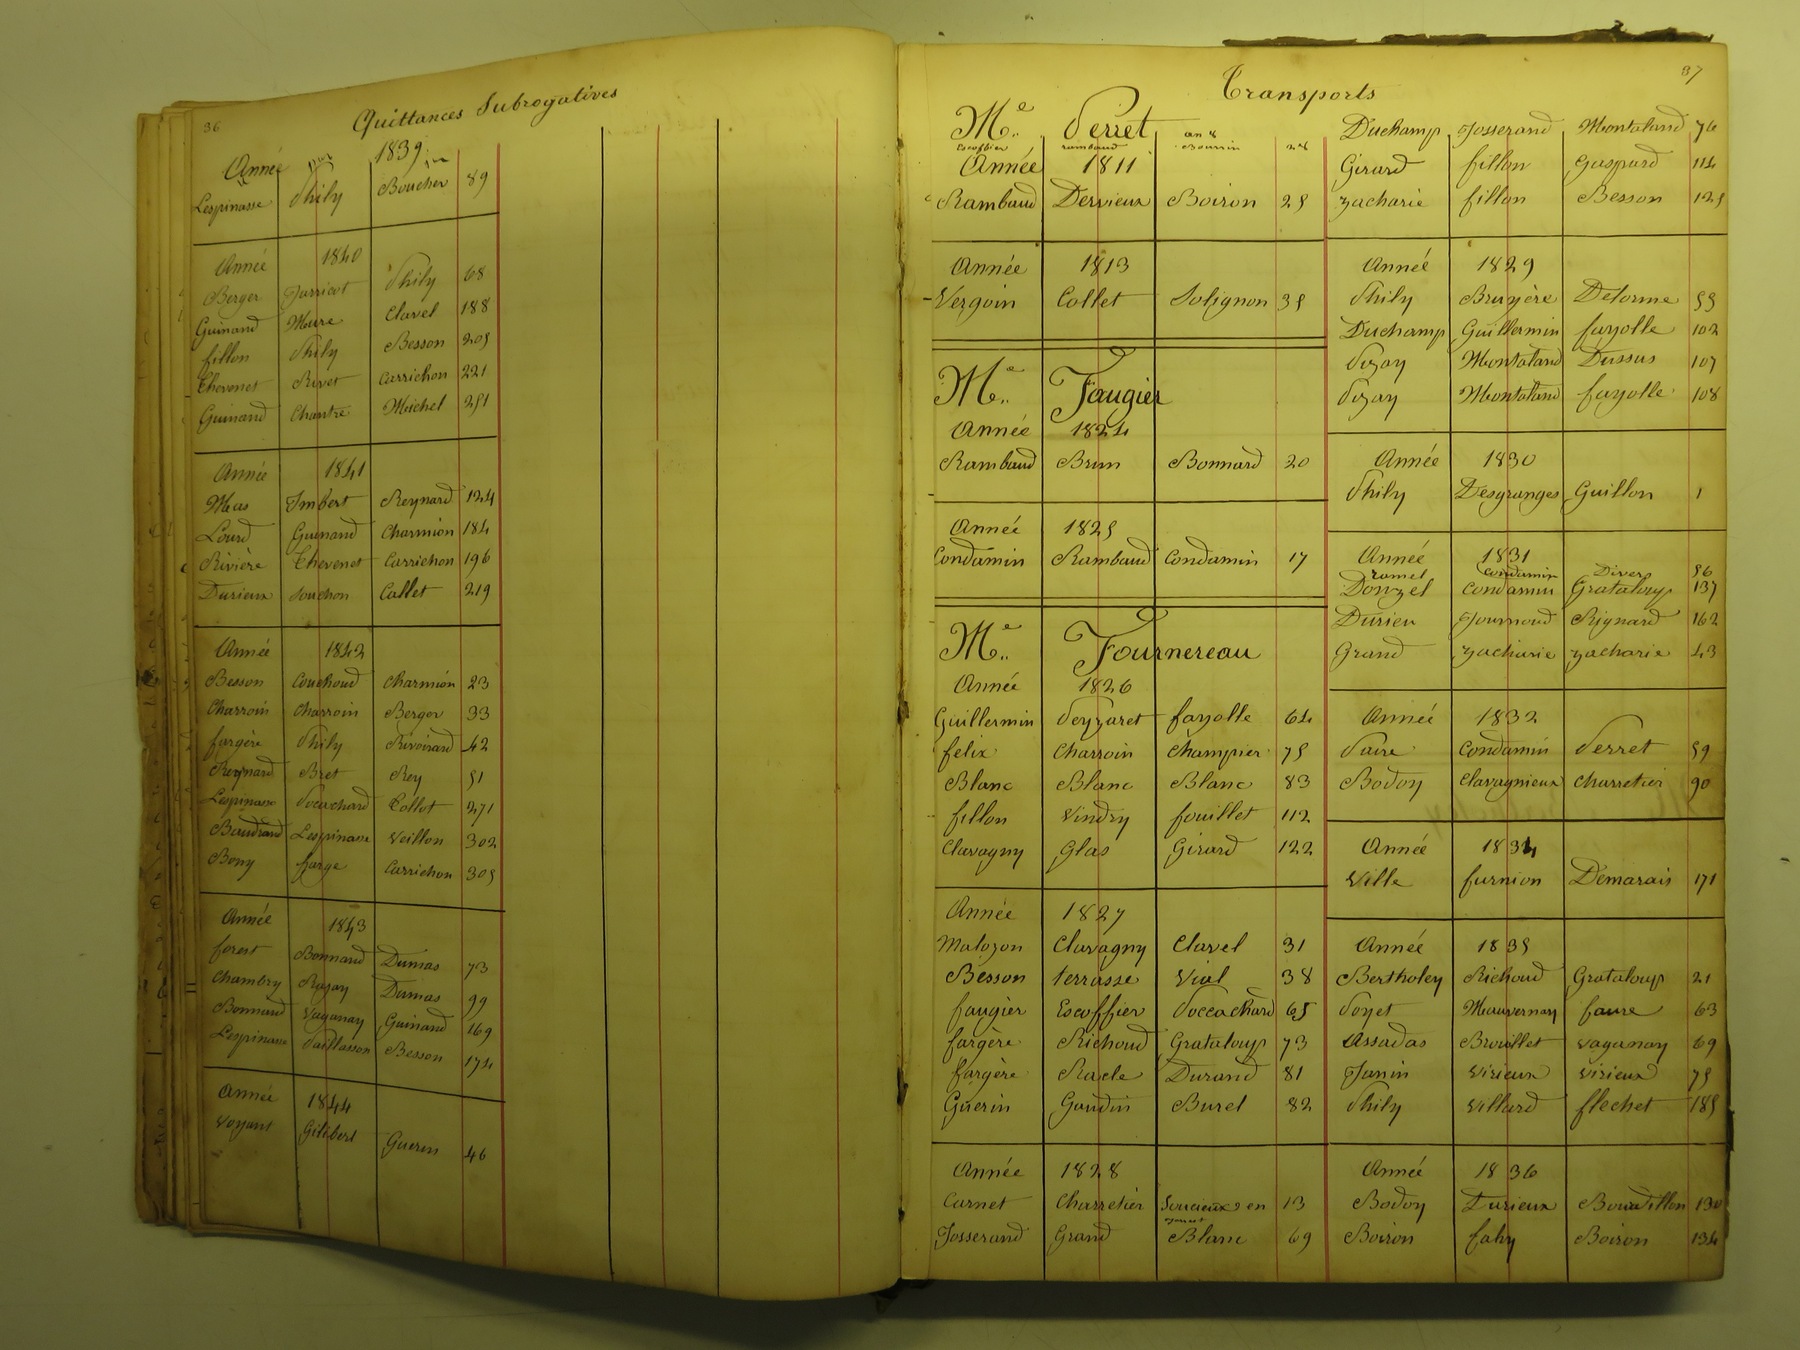 36
Quittances Subrogatives
Année 1839
Lespinasse Phily Boucher 89
Année 1840
Berger Jarricot Phily 68
Guinand Mure Clavel 188
fillon Phily Besson 205
Thevenet Rivet Carrichon 221
Guinand Chantre Michel 251
Année 1841
Mas Imbert Reynard 124
Lourd Guinand Charmion 184
Rivière Thevenet Carrichon 196
Durieux Souchon Collet 219
Année 1842
Besson Couchoud Charmion 23
Charroin Charroin Berger 33
fargère Phily Rivoirard 42
Reynard Bret Rey 51
Lespinasse Poccachard Collot 271
Baudrand Lespinasse Veillon 302
Bony farge Carrichon 305
Année 1843
forest Bonnard Dumas 73
Chambry Rozay Dumas 99
Bonnard Vaganay Guinand 169
Lespinasse Paillasson Besson 174
Année 1844
Voyant Gilibert Guerin 46
37
Transports
Me. Perret
Escoffier rambaud an 8 Bourrin 28
Année 1811
Rambaud Dervieux Boiron 25
Année 1813
Vergoin Collet Solignon 35
Me. Faugier
Année 1824
Rambaud Brun Bonnard 20
Année 1825
Condamin Rambaud Condamin 17
Me. Fournereau
Année 1826
Guillermin Peyzaret fayolle 64
felix Charroin Champier 75
Blanc Blanc Blanc 83
fillon Vindry fouillet 112
Clavagny Glas Girard 122
Année 1827
Malozon Clavagny Clavel 31
Besson terrasse Vial 38
faugier Escoffier Poccachard 65
fargère Richoud Grataloup 73
fargère Racle Durand 81
Guerin Gaudin Burel 82
Année 1828
Carnet Charretier en 13
Josserand Grand Blanc 69
Duchamp Josserand Montaland 76
Girard fillon Gaspard 114
Zacharie fillon Besson 125
Année 1829
Phily Bruyère Delorme 55
Duchamp Guillermin fayolle 102
Pizay Montaland Dussus 107
Pizay Montaland fayolle 108
Année 1830
Phily Desgranges Guillon 1
Année 1831
ramel Condamin Divers 56
Donzel Condamin Grataloup 137
Durieu Journoud Rignard 162
Grand Zacharie Zacharie 43
Année 1832
Paire Condamin Perret 59
Bodoy Clavagnieux Charretier 90
Année 1834
Ville furnion Demarais 171
Année 1835
Bertholey Richoud Grataloup 21
Poyet Mauvernay faure 63
Assadas Brouillet Vaganay 69
Janin Virieux Virieux 75
Phily Villard flechet 185
Année 1836
Bodoy Durieux Bourdillon 130
Boiron fahy Boiron 134